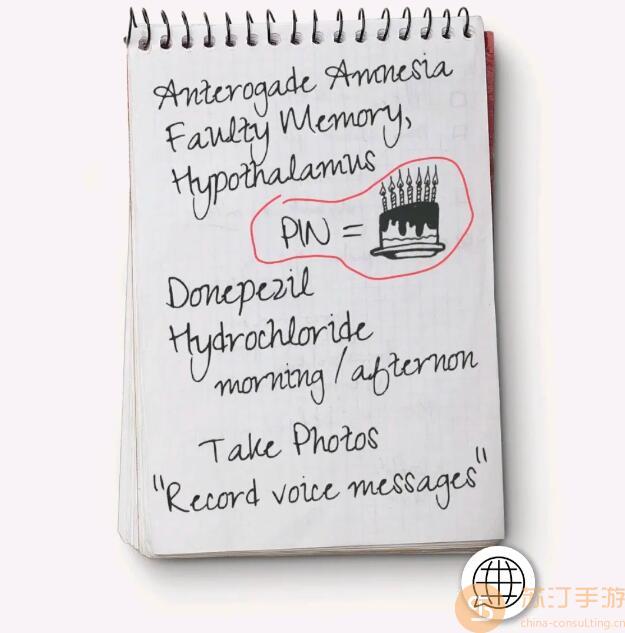 Anterogade Amnesia
Faulty Memory,
Hypothalamus
PIN =
Donepezil
Hydrochloride
morning / afternon
Take Photos
"Record voice messages"
苏汀手游
china-consulting.cn